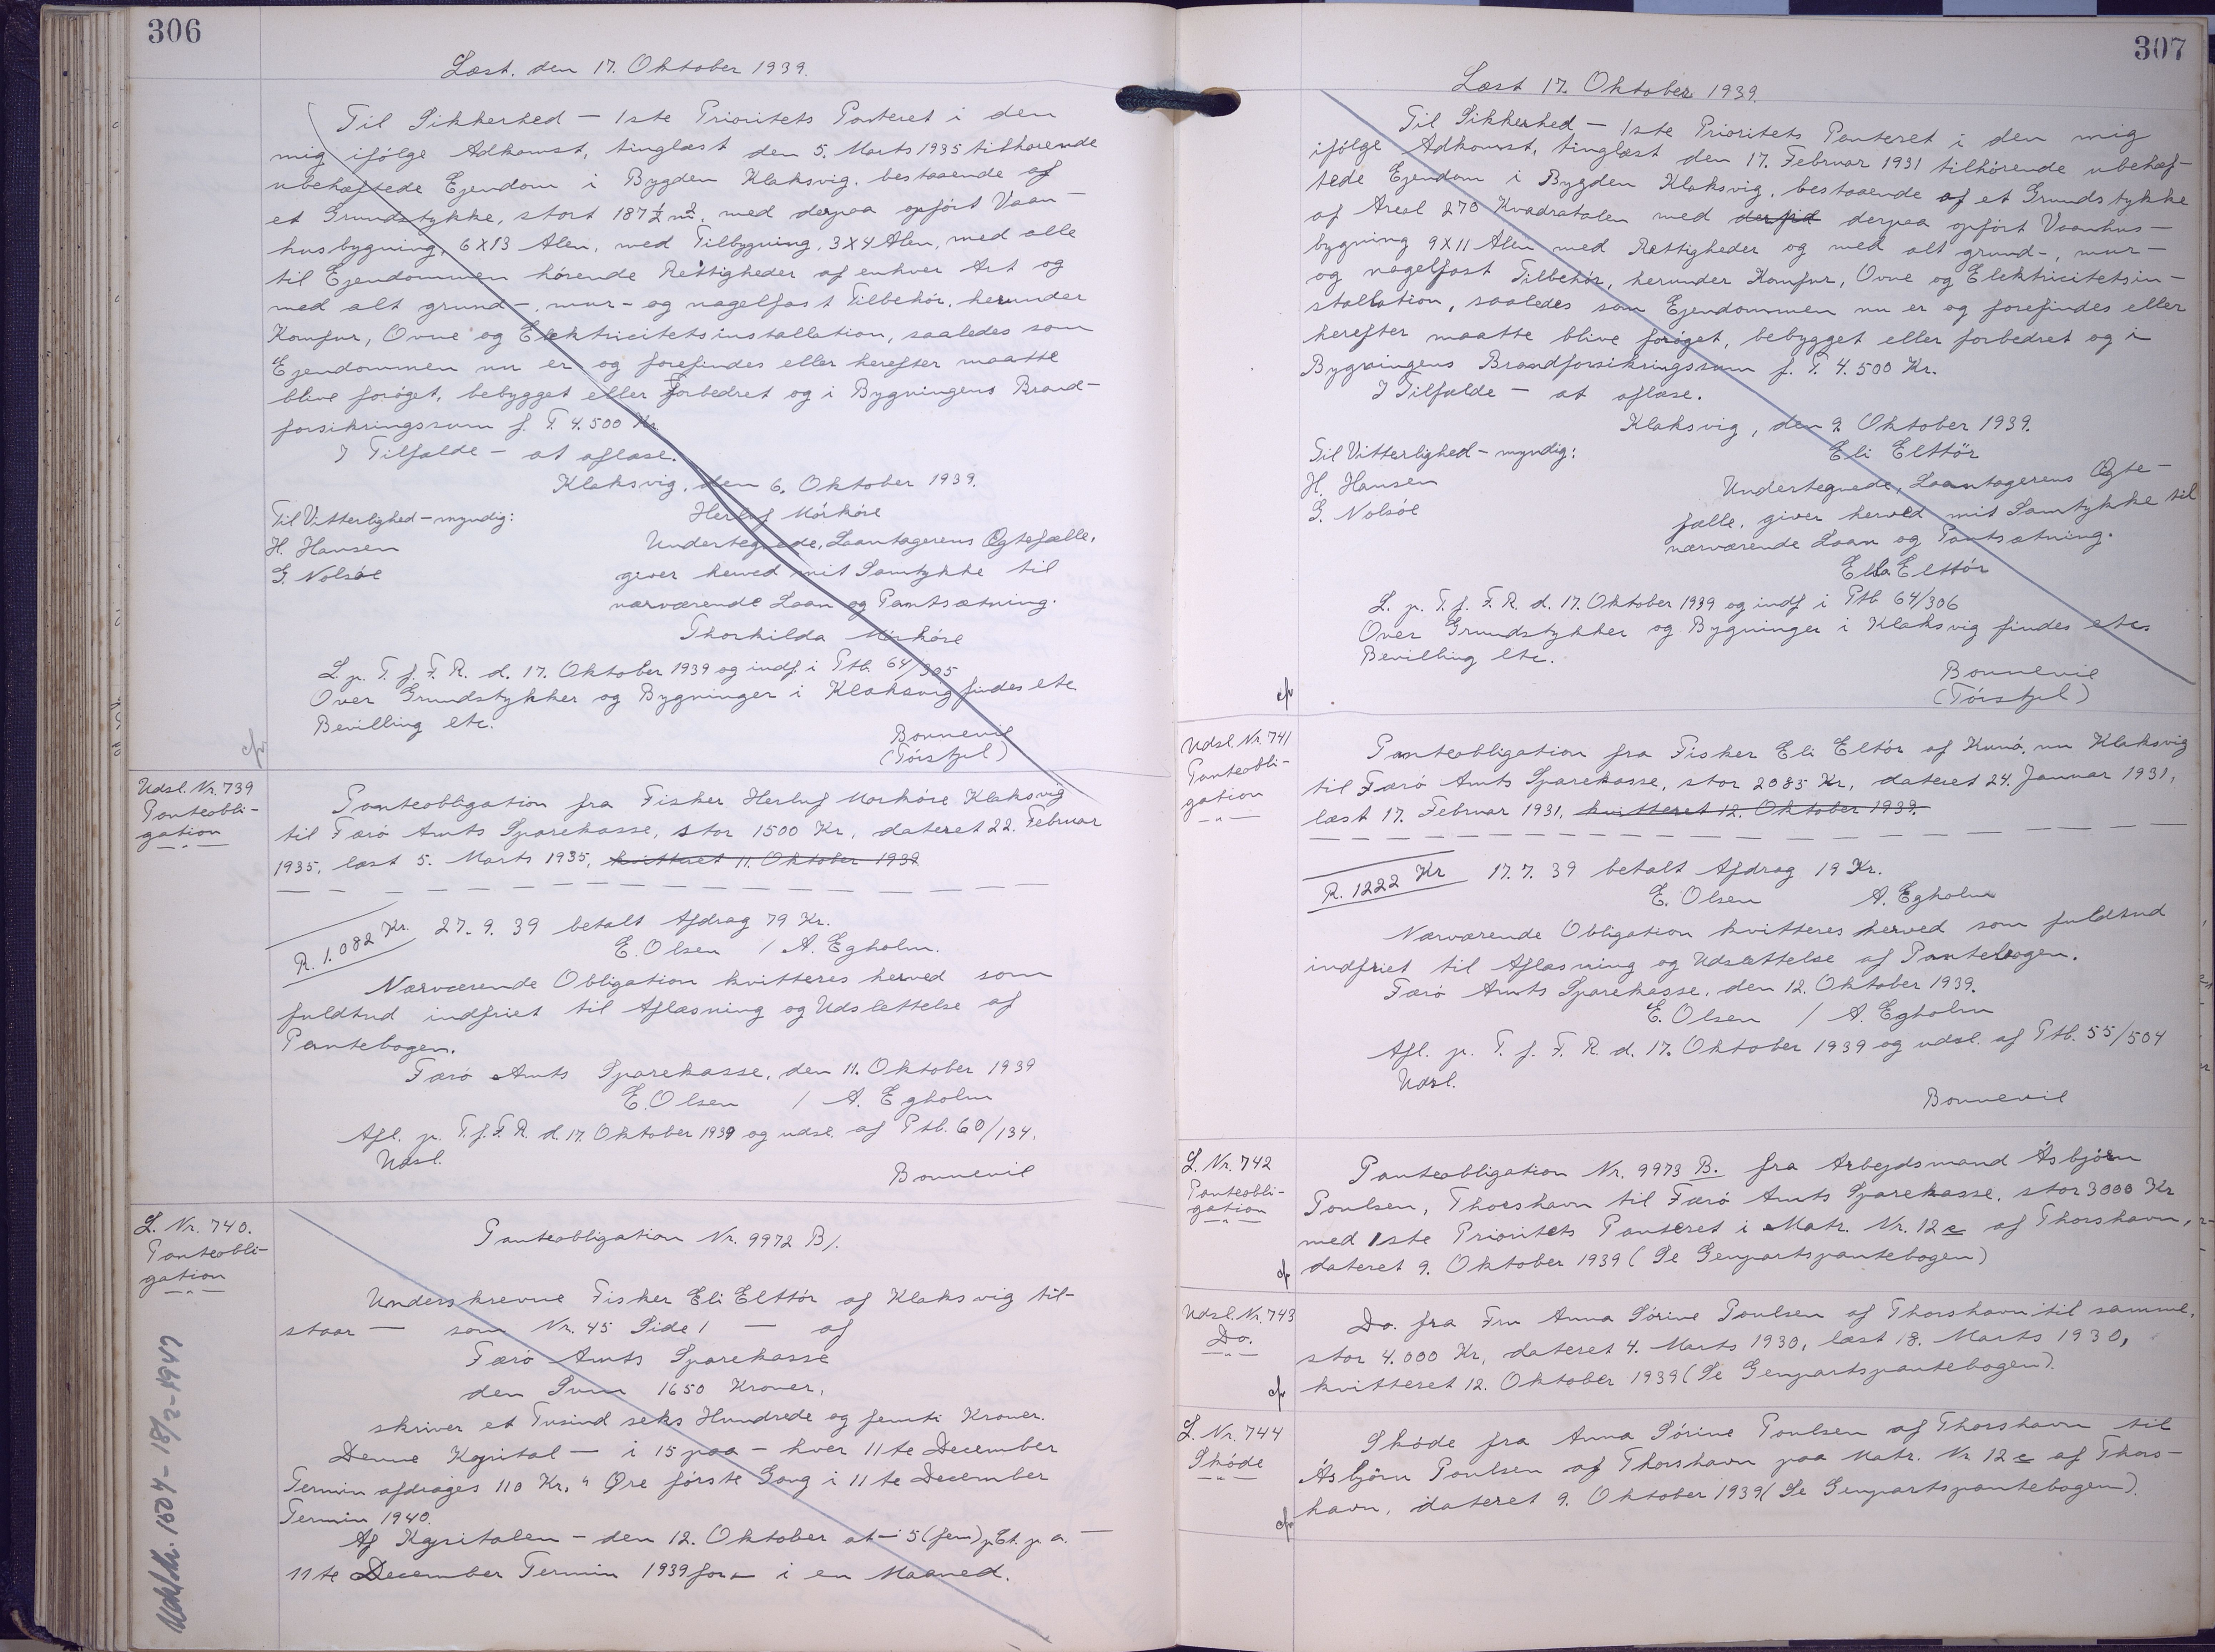 306
Læst. den 17. Oktober 1939.
Til Sikkerhed — 1ste Prioritets Panteret i den
mig ifølge Adkomst, tinglæst den 5. Marts 1935 tilhørende
ubehæftede Ejendom i Bygden Klaksvig, bestaaende af
et Grundstykke, stort 187½ m², med derpaa opført Vaan-
husbygning, 6X13 Alen, med Tilbygning, 3X4 Alen, med alle
til Ejendommen hørende Rettigheder af enhver Art og
med alt grund-, mur- og nagelfast Tilbehör, herunder
Komfur, Ovne og Elektricitetsinstallation, saaledes som
Ejendommen nu er og forefindes eller herefter maatte
blive forøget, bebygget eller forbedret og i Bygningens Brand-
forsikringssum f. T. 4.500 Kr.
I Tilfælde — at aflæse.
Klaksvig, den 6. Oktober 1939.
Til Vitterlighed — myndig:
Herluf Mörköre
H. Hansen
Undertegnede, Laantagerens Ægtefælle,
G. Nolsöe
giver herved mit Samtykke til
nærværende Laan og Pantsætning.
Thorhilda Mörköre
L. p. T. f. F. R. d. 17. Oktober 1939 og indf. i Ptb. 64/305
Over Grundstykker og Bygninger i Klaksvig findes etc.
Bevilling etc.
Bonnevie
(Tórsfjel)
Udsl. Nr. 739
Panteobli-
gation
Panteobligation fra Fisker Herluf Morköre Klaksvig
til Færö Amts Sparekasse, stor 1500 Kr, dateret 22. Februar
1935, læst 5. Marts 1935, kvitteret 11. Oktober 1939
R. 1.082 Kr. 27. 9. 39 betalt Afdrag 79 Kr.
E. Olsen / A. Egholm.
Nærværende Obligation kvitteres herved som
fuldtud indfriet til Aflæsning og Udslettelse af
Pantebogen.
Færö Amts Sparekasse, den 11. Oktober 1939
E. Olsen / A. Egholm
Afl. p. T. f. F. R. d. 17. Oktober 1939 og udsl. af Ptb. 60/134.
Udsl.
Bonnevie
L. Nr. 740.
Panteobli-
gation
Panteobligation Nr. 9972 B/.
Underskrevne Fisker Eli Elttör af Klaksvig til-
staar — som Nr. 45 Side 1 — af
Færö Amts Sparekasse
den Sum 1650 Kroner,
skriver et Tusind seks Hundrede og femti Kroner.
Denne Kapital — i 15 paa — hver 11te December
Termin afdrages 110 Kr. " Øre første Gang i 11te December
Termin 1940.
Af Kapitalen — den 12. Oktober at — 5 (fem) pCt. p. a. —
11te December Termin 1939 for — i en Maaned.
307
Læst 17. Oktober 1939.
Til Sikkerhed — 1ste Prioritets Panteret i den mig
ifölge Adkomst, tinglæst den 17. Februar 1931 tilhörende ubehæf-
tede Ejendom i Bygden Klaksvig, bestaaende af et Grundstykke
af Areal 270 Kvadratalen med derpaa opfört Vaanhus-
bygning 9X11 Alen med Rettigheder og med alt grund-, mur-
og nagelfast Tilbehör, herunder Komfur, Ovne og Elektricitetsin-
stallation, saaledes som Ejendommen nu er og forefindes eller
herefter maatte blive forøget, bebygget eller forbedret og i
Bygningens Brandforsikringssum f. T. 4.500 Kr.
I Tilfælde — at aflæse.
Klaksvig, den 9. Oktober 1939.
Til Vitterlighed — myndig:
Eli Elttör
H. Hansen
Undertegnede, Laantagerens Ægte-
G. Nolsöe
fælle, giver herved mit Samtykke til
nærværende Laan og Pantsætning.
Ella Elttör
L. p. T. f. F. R. d. 17. Oktober 1939 og indf i Ptb 64/306
Over Grundstykker og Bygninger i Klaksvig findes etc.
Bevilling etc.
Bonnevie
(Tórsfjel)
Udsl. Nr. 741
Panteobli-
gation
Panteobligation fra Fisker Eli Eltör af Kunó, nu Klaksvig
til Færö Amts Sparekasse, stor 2085 Kr, dateret 24. Januar 1931,
læst 17. Februar 1931, kvitteret 12. Oktober 1939.
R. 1222 Kr 17. 7. 39 betalt Afdrag 19 Kr.
E. Olsen A. Egholm
Nærværende Obligation kvitteres herved som fuldtud
indfriet til Aflæsning og Udslettelse af Pantebogen.
Færö Amts Sparekasse, den 12. Oktober 1939.
E. Olsen / A. Egholm
Afl. p. T. f. F. R. d. 17. Oktober 1939 og udsl. af Ptb. 55/504
Udsl.
Bonnevie
L. Nr. 742
Panteobli-
gation
Panteobligation Nr. 9973 B. fra Arbejdsmand Ásbjörn
Poulsen, Thorshavn til Færö Amts Sparekasse, stor 3000 Kr
med 1ste Prioritets Panteret i Matr. Nr. 12c af Thorshavn,
dateret 9. Oktober 1939 (Se Genpartspantebogen)
Udsl. Nr. 743
Do.
Do. fra Fru Anna Sörine Poulsen af Thorshavn til samme,
stor 4.000 Kr, dateret 4. Marts 1930, læst 18. Marts 1930,
kvitteret 12. Oktober 1939 (Se Genpartspantebogen).
L. Nr. 744
Sköde
Sköde fra Anna Sörine Poulsen af Thorshavn til
Ásbjörn Poulsen af Thorshavn paa Matr. Nr 12c af Thors-
havn, dateret 9. Oktober 1939 (Se Genpartspantebogen).